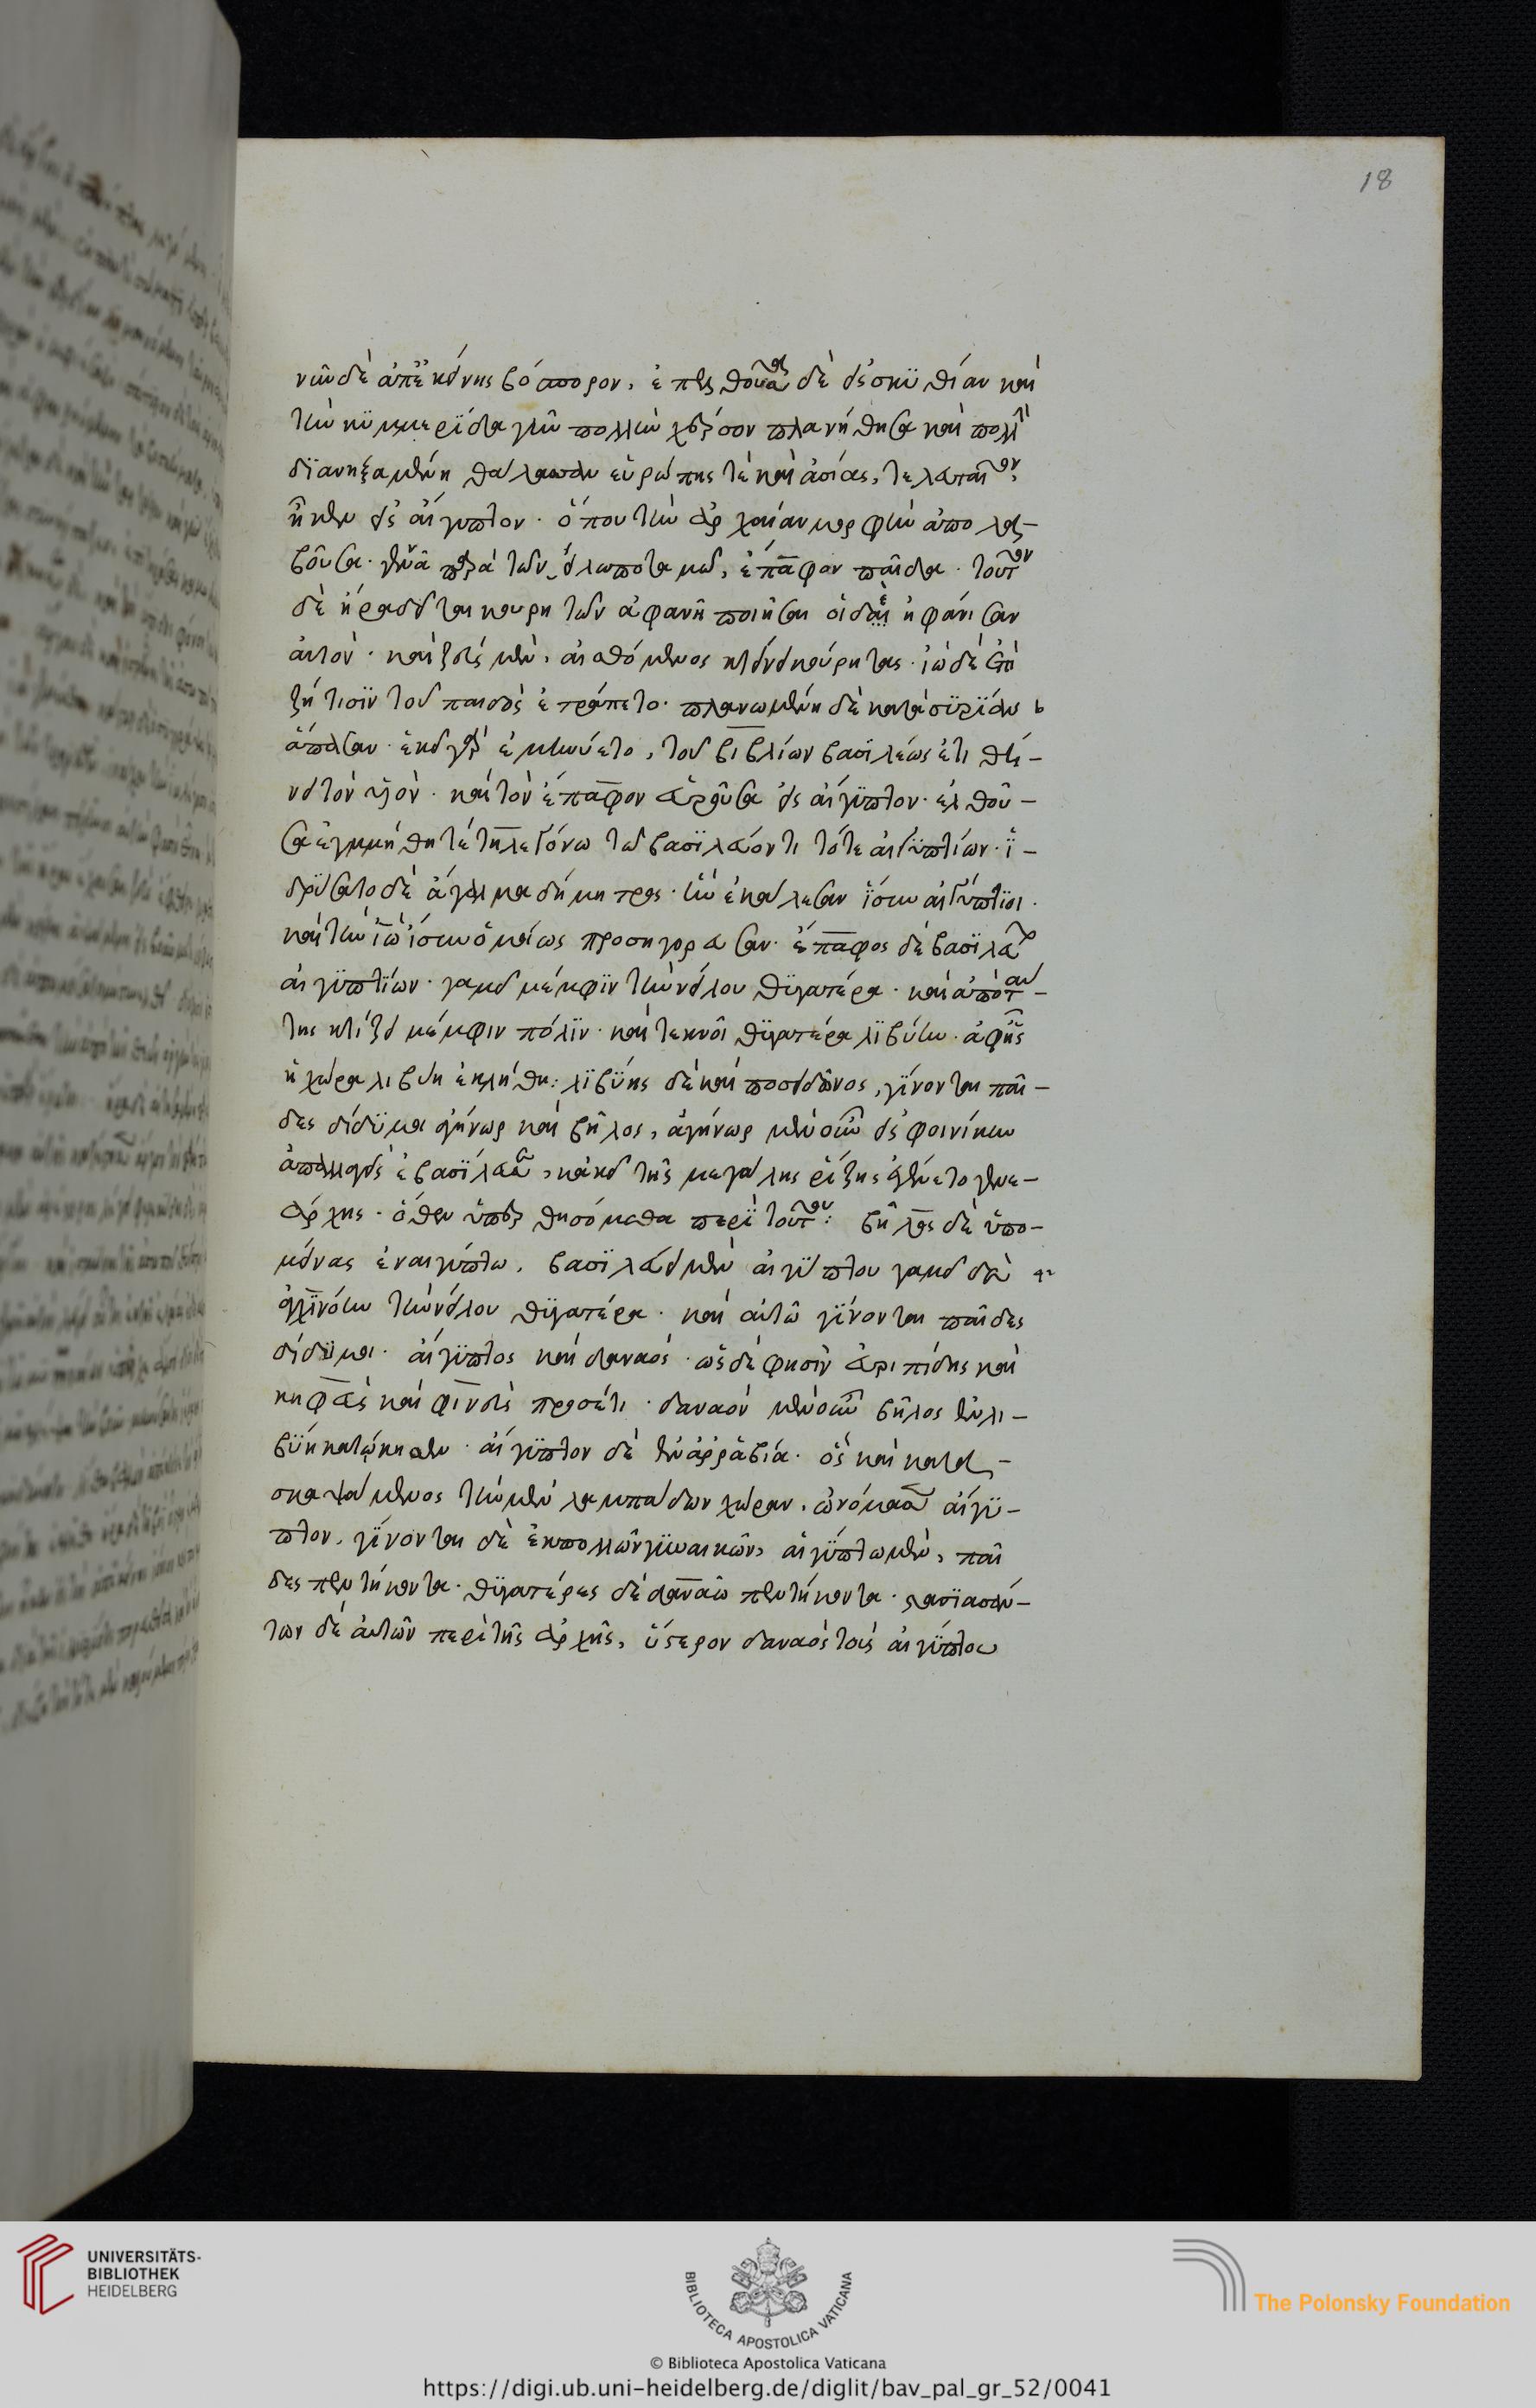 18
νῦν δὲ ἀπ' ἐκείνης βόσπορον, ἐπελθοῦσα δὲ εἰς σκυθίαν καὶ
τὴν κιμμερίδα γῆν πολλὴν χέρσον πλανηθεῖσα καὶ πολλὴν
διανηξαμένη θάλασσαν εὐρώπης τὲ καὶ ἀσίας, τελευταῖον
ἧκεν εἰς αἴγυπτον· ὅπου τὴν ἀρχαίαν μορφὴν ἀπολα-
βοῦσα· γεννᾶ παρὰ τῶ νείλω ποταμῶ, ἔπαφον παῖδα· τοῦτον
δὲ ἥρα δεῖται κουρήτων ἀφανῆ ποιῆσαι οἱ δὲ ἠφάνισαν
αὐτὸν· καὶ ζεὺς μὲν, αἰσθόμενος κτείνει κούρητας· ἰὼ δὲ ἐπὶ
ζήτισιν τοῦ παιδὸς ἐτράπετο· πλανωμένη δὲ κατὰ συρίαν
ἅπασαν· ἐκεῖ γὰρ ἐμηνύετο, τοῦ βιβλίων βασιλέως ἔτι θή-
νει τὸν υἱὸν· καὶ τὸν ἔπαφον εὑροῦσα εἰς αἴγυπτον· ἐλθοῦ-
σα ἐγαμήθη τὲ τηλεγόνω τῶ βασιλεύοντι τότε αἰγυπτίων· ἱ-
δρύσατο δὲ ἄγαλμα δήμητρος· ἣν ἐκάλεσαν ἶσιν αἰγύπτιοι·
καὶ τὴν ἰὼ ἶσιν ὁμοίως προσηγόρευσαν· ἔπαφος δὲ βασιλεύων
αἰγυπτίων· γαμεῖ μέμφιν τὴν νείλου θυγατέρα· καὶ ἀπὸ ταύ-
της κτίζει μέμφιν πόλιν· καὶ τεκνοῖ θυγατέρα λιβύην· ἀφ' ἧς
ἡ χώρα λιβύη ἐκλήθη: λιβύης δὲ καὶ ποσειδῶνος, γίνονται παῖ-
δες δίδυμοι ἀγήνωρ καὶ βῆλος, ἀγήνωρ μὲν οὖν εἰς φοινίκην
ἀπαλλαγεὶς ἐβασίλευσε, κἀκεῖ τῆς μεγάλης ῥίζης ἐγένετο γενε-
άρχης· ὅθεν ὑπερθησόμεθα περὶ τούτου: βῆλος δὲ ὑπο-
μείνας ἐν αἰγύπτω, βασιλεύει μὲν αἰγύπτου γαμεῖ δὲ
ἀγχινόην τὴν νείλου θυγατέρα· καὶ αὐτῶ γίνονται παῖδες
δίδυμοι· αἴγυπτος καὶ δαναός· ὡς δέ φησιν εὐριπίδης καὶ
κηφεὺς καὶ φινεὺς προσέτι· δαναὸν μὲν οὖν βῆλος ἐν λι-
βύη κατώκησεν· αἴγυπτον δὲ ἐν ἀρραβία· ὃς καὶ κατα-
σκαψάμενος τὴν μὲν λαμπάδων χώραν, ὠνόμασεν αἴγυ-
πτον, γίνονται δὲ ἐκ πολλῶν γυναικῶν, αἰγύπτω μὲν, παῖ
δες πεντήκοντα· θυγατέρες δὲ δαναῶ πεντήκοντα· στασιασάν-
των δὲ αὐτῶν περὶ τῆς ἀρχῆς, ὕστερον δαναὸς τοὺς αἰγύπτου
UNIVERSITÄTS-
BIBLIOTHEK
HEIDELBERG
BIBLIOTECA APOSTOLICA VATICANA
The Polonsky Foundation
© Biblioteca Apostolica Vaticana
https://digi.ub.uni-heidelberg.de/diglit/bav_pal_gr_52/0041